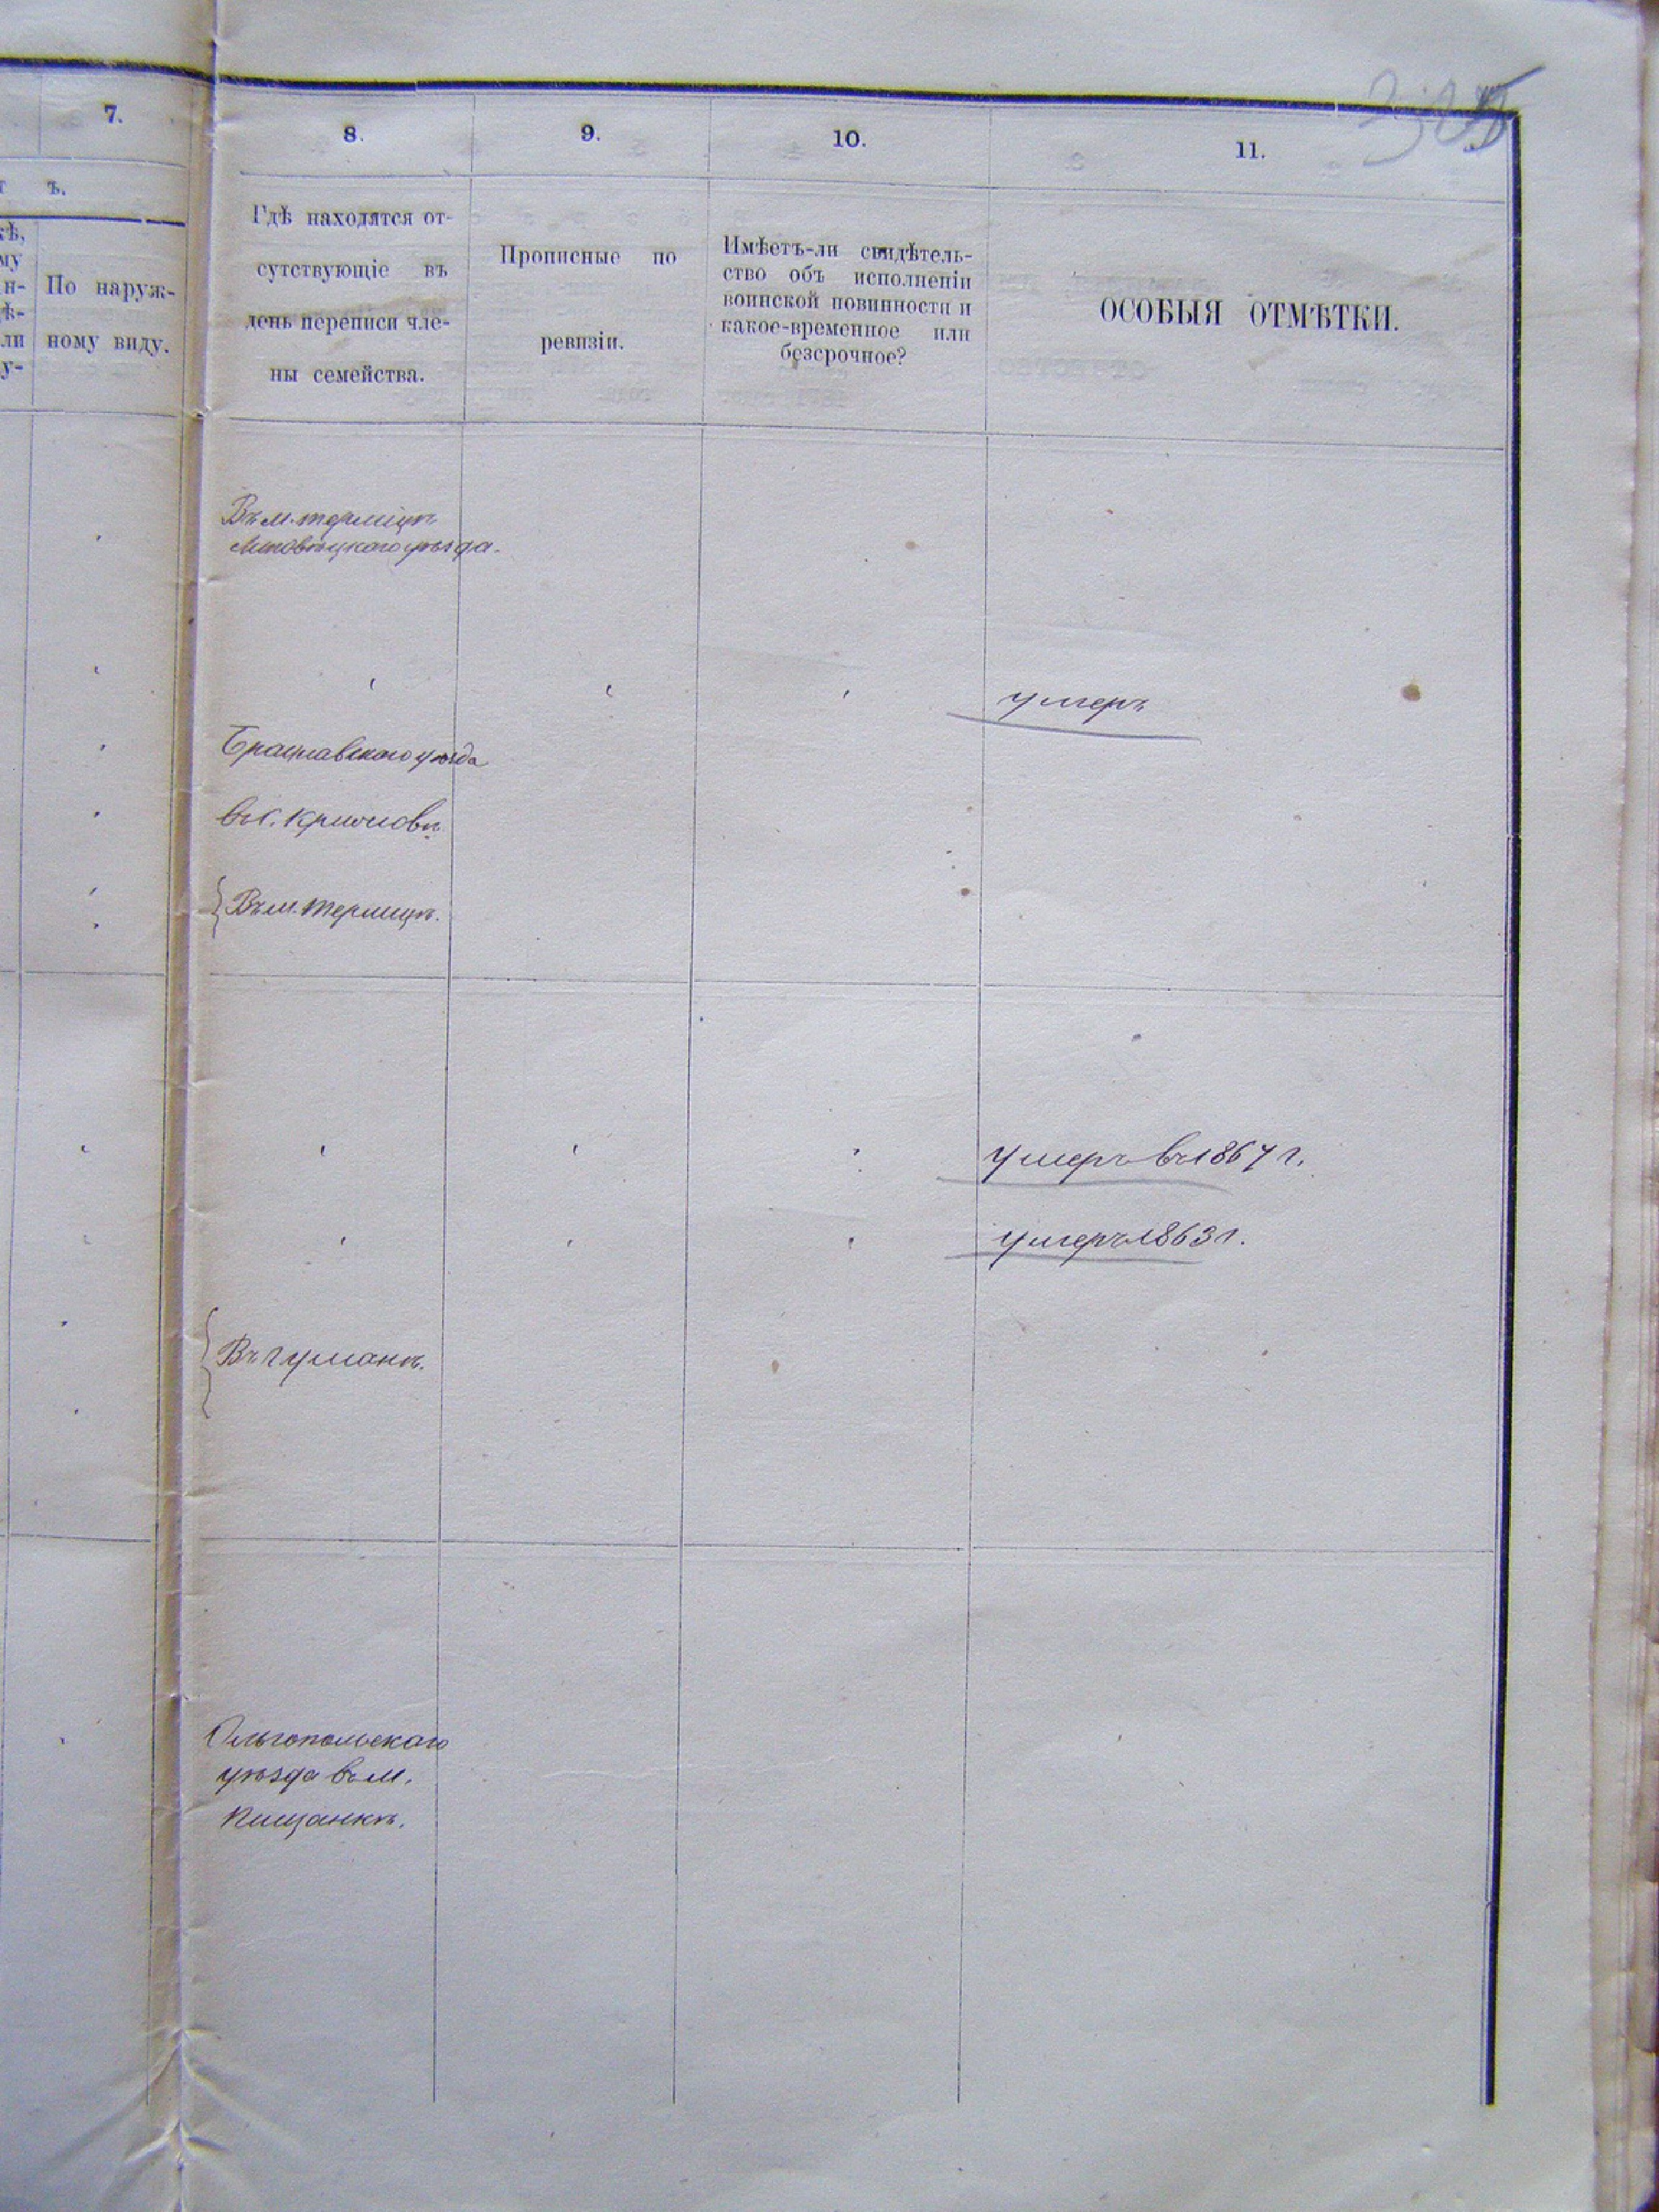 7.
8.
9.
10.
11.
ъ.
По наруж-
ному виду.
Гдѣ находятся от-
сутствующіе въ
день переписи чле-
ны семейства.
Прописные по
ревизіи.
Имѣетъ-ли свидѣтель-
ство объ исполненіи
воинской повинности и
какое-временное или
безсрочное?
ОСОБЫЯ ОТМѢТКИ.
Въ м.
Липовецкого уѣзда.
умеръ
Брацлавскаго уѣзда
въ с.
Въ м.
умеръ въ 1867 г.
умеръ 1863 г.
Въ г Умани.
Ольгопольскаго
уѣзда въ м.
Пищанкѣ.